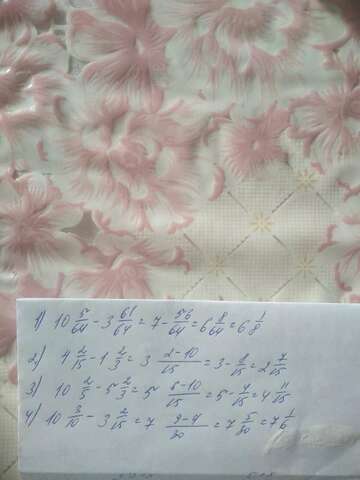 1) 10 5/64 - 3 61/64 = 7 - 56/64 = 6 8/64 = 6 1/8
2) 4 2/15 - 1 2/3 = 3 2-10/15 = 3 - 8/15 = 2 7/15
3) 10 2/5 - 5 2/3 = 5 6-10/15 = 5 - 4/15 = 4 11/15
4) 10 3/10 - 3 2/15 = 7 9-4/30 = 7 5/30 = 7 1/6